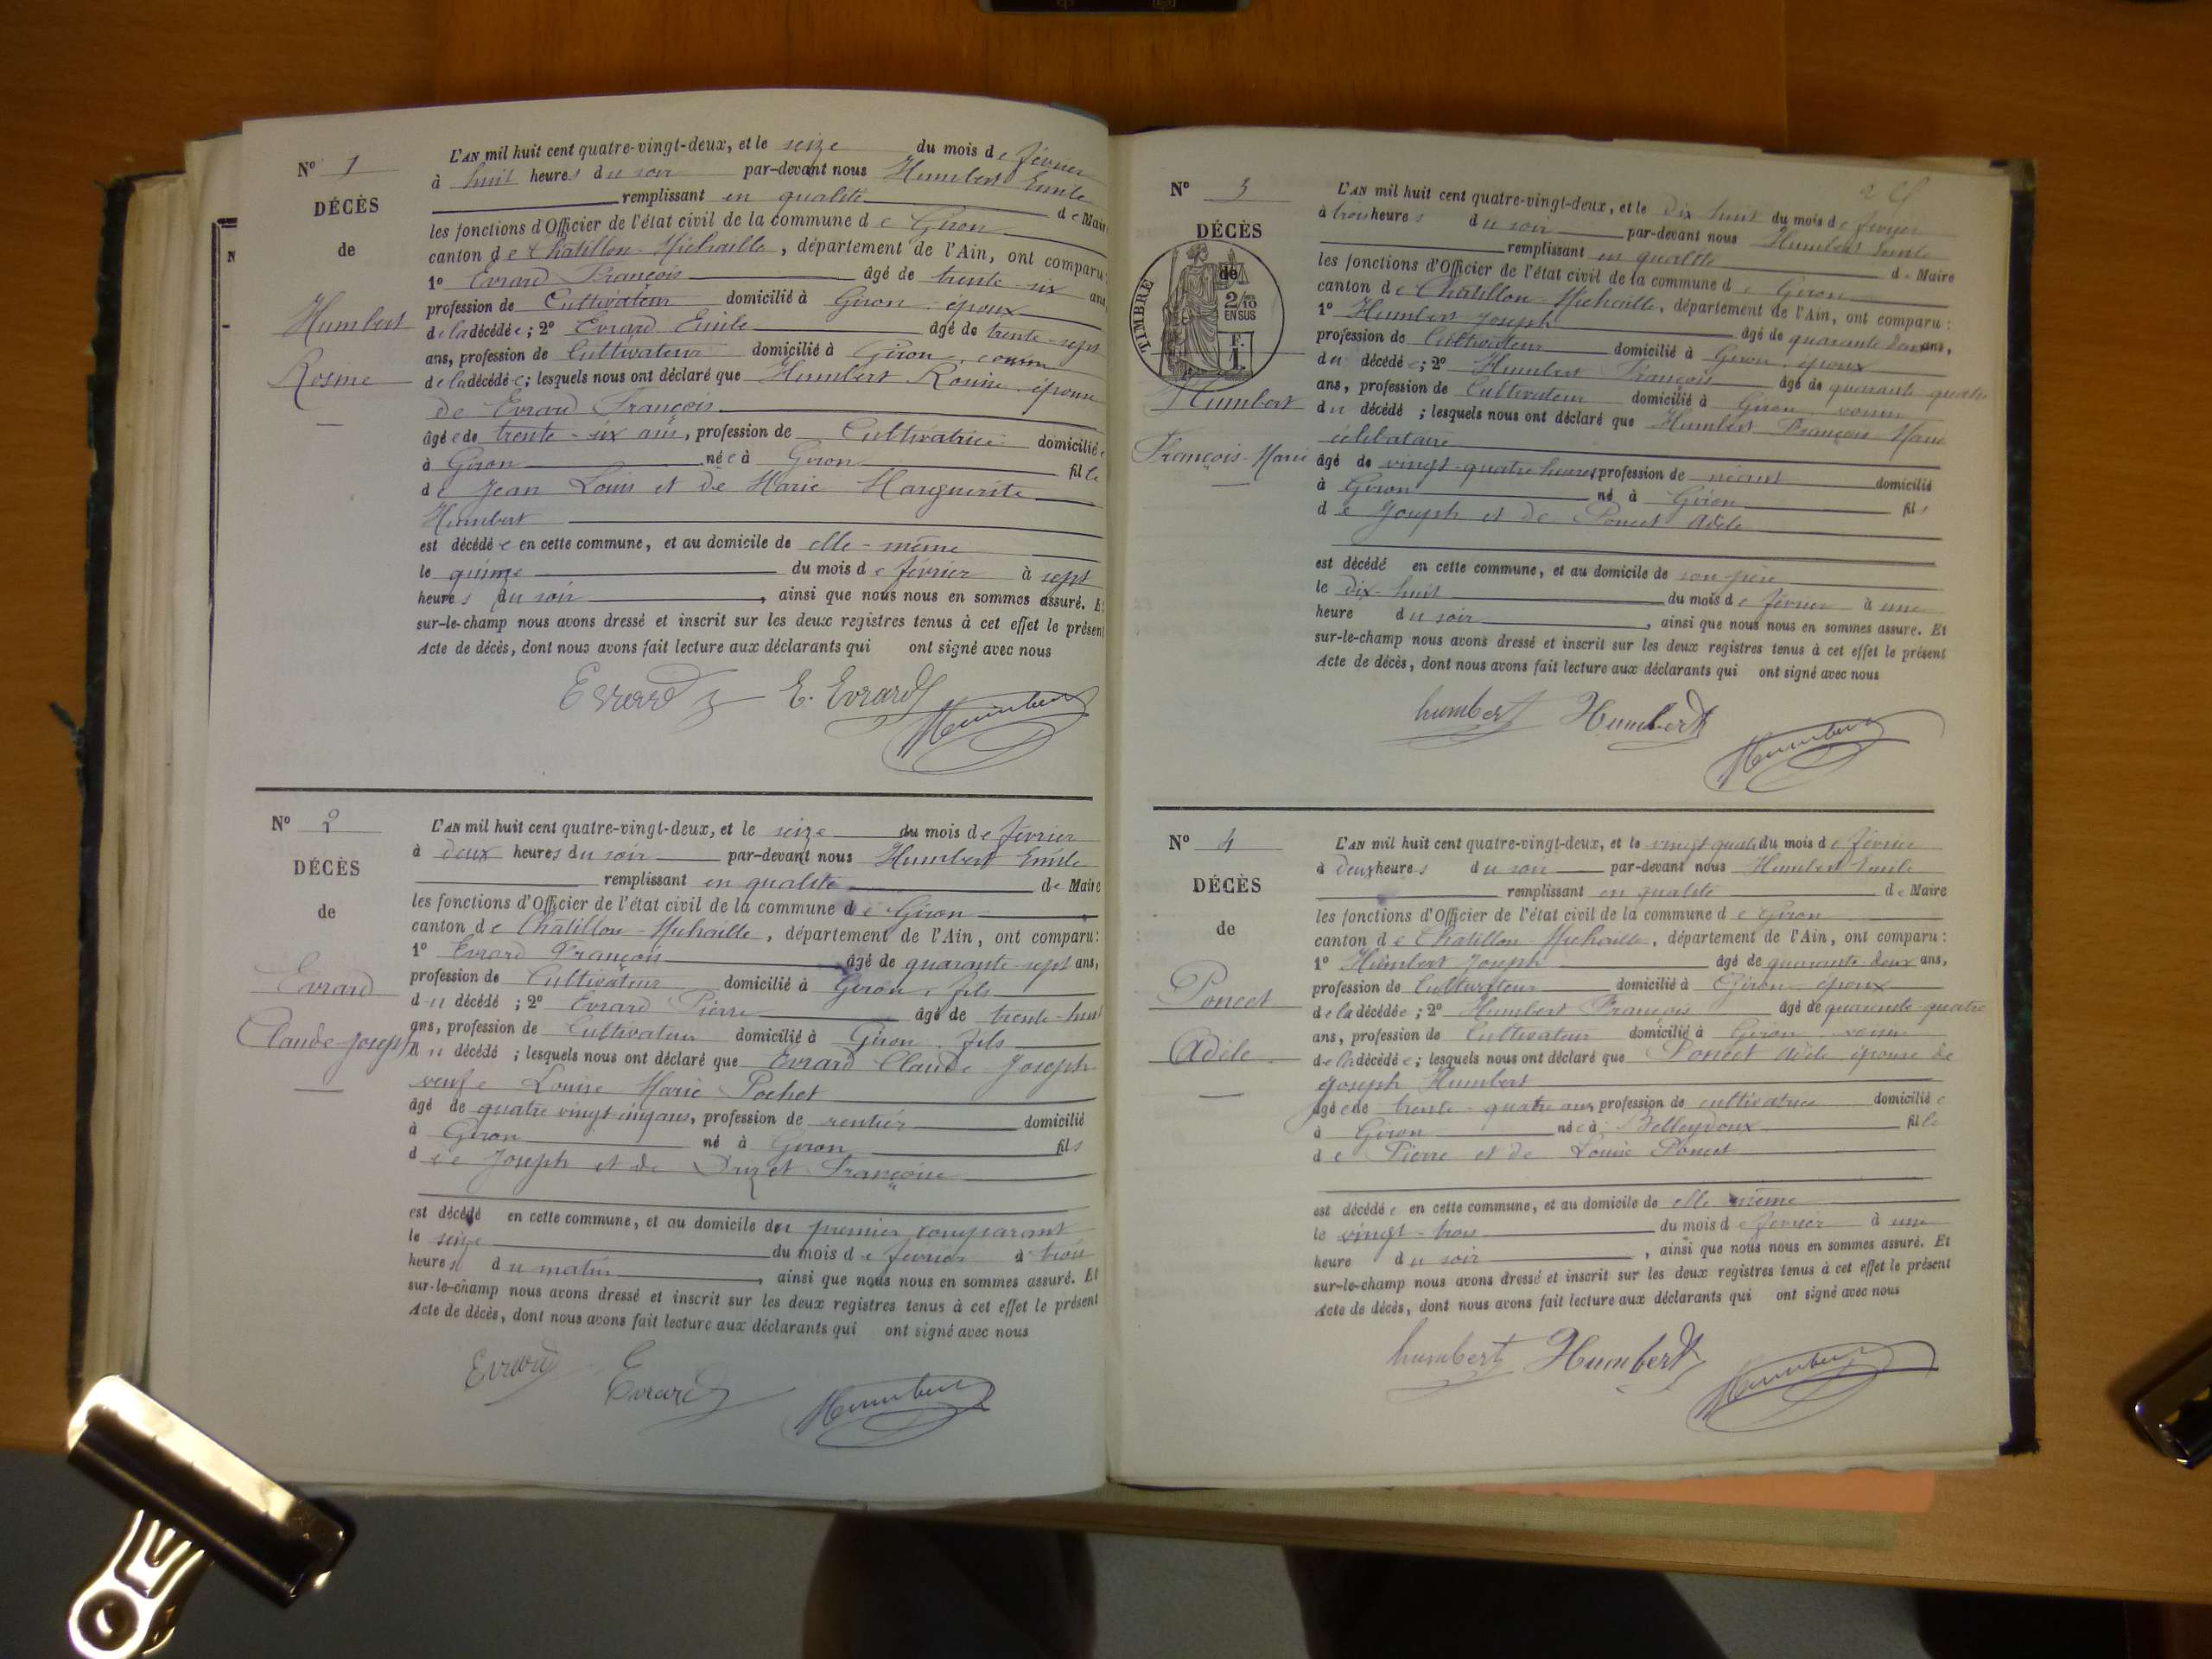 N° 1
DÉCÈS
de
Humbert
Rosine
L'AN mil huit cent quatre-vingt-deux, et le seize du mois de février
à huit heures du soir par-devant nous Humbert Emile
remplissant en qualité de Maire
les fonctions d'Officier de l'état civil de la commune de Giron
canton de Châtillon-Michaille, département de l'Ain, ont comparu:
1° Evrard François âgé de trente-six ans
profession de Cultivateur domicilié à Giron, époux
de la décédée; 2° Evrard Emile âgé de trente-sept
ans, profession de Cultivateur domicilié à Giron, cousin
de la décédée; lesquels nous ont déclaré que Humbert Rosine, épouse
de Evrard François
âgée de trente-six ans, profession de Cultivatrice domiciliée
à Giron née à Giron fille
de Jean Louis et de Marie Marguerite
Humbert
est décédée en cette commune, et au domicile de elle-même
le quinze du mois de février à sept
heures du soir, ainsi que nous nous en sommes assuré. Et
sur-le-champ nous avons dressé et inscrit sur les deux registres tenus à cet effet le présent
Acte de décès, dont nous avons fait lecture aux déclarants qui ont signé avec nous
Evrard E. Evrard Humbert
N° 2
DÉCÈS
de
Evrard
Claude-Joseph
L'AN mil huit cent quatre-vingt-deux, et le seize du mois de février
à deux heures du soir par-devant nous Humbert Emile
remplissant en qualité de Maire
les fonctions d'Officier de l'état civil de la commune de Giron
canton de Châtillon-Michaille, département de l'Ain, ont comparu:
1° Evrard François âgé de quarante-sept ans,
profession de Cultivateur domicilié à Giron, fils
du décédé; 2° Evrard Pierre âgé de trente-huit
ans, profession de Cultivateur domicilié à Giron, fils
du décédé; lesquels nous ont déclaré que Evrard Claude Joseph
veuf de Louise Marie Pochet
âgé de quatre vingt cinq ans, profession de rentier domicilié
à Giron né à Giron fils
de Joseph et de Druzet Françoise
est décédé en cette commune, et au domicile du premier comparant
le seize du mois de février à trois
heures du matin, ainsi que nous nous en sommes assuré. Et
sur-le-champ nous avons dressé et inscrit sur les deux registres tenus à cet effet le présent
Acte de décès, dont nous avons fait lecture aux déclarants qui ont signé avec nous
Evrard Evrard Humbert
N° 3
DÉCÈS
de
TIMBRE
2/10
EN SUS
F.
1.
Humbert
François-Marie
L'AN mil huit cent quatre-vingt-deux, et le dix huit du mois de février
à trois heures du soir par-devant nous Humbert Emile
remplissant en qualité de Maire
les fonctions d'Officier de l'état civil de la commune de Giron
canton de Châtillon-Michaille, département de l'Ain, ont comparu:
1° Humbert Joseph âgé de quarante deux ans,
profession de Cultivateur domicilié à Giron, époux
du décédé; 2° Humbert François âgé de quarante quatre
ans, profession de Cultivateur domicilié à Giron, voisin
du décédé; lesquels nous ont déclaré que Humbert François Marie
célibataire
âgé de vingt-quatre heures, profession de néant domicilié
à Giron né à Giron fils
de Joseph et de Poncet Adèle
est décédé en cette commune, et au domicile de son père
le dix-huit du mois de février à une
heure du soir, ainsi que nous nous en sommes assuré. Et
sur-le-champ nous avons dressé et inscrit sur les deux registres tenus à cet effet le présent
Acte de décès, dont nous avons fait lecture aux déclarants qui ont signé avec nous
humbert Humbert Humbert
N° 4
DÉCÈS
de
Poncet
Adèle
L'AN mil huit cent quatre-vingt-deux, et le vingt quatre du mois de février
à deux heures du soir par-devant nous Humbert Emile
remplissant en qualité de Maire
les fonctions d'Officier de l'état civil de la commune de Giron
canton de Châtillon-Michaille, département de l'Ain, ont comparu:
1° Humbert Joseph âgé de quarante-deux ans,
profession de Cultivateur domicilié à Giron, époux
de la décédée; 2° Humbert François âgé de quarante-quatre
ans, profession de Cultivateur domicilié à Giron, voisin
de la décédée; lesquels nous ont déclaré que Poncet Adèle épouse de
Joseph Humbert
âgée de trente-quatre ans, profession de cultivatrice domiciliée
à Giron née à Belleydoux fille
de Pierre et de Louise Poncet
est décédée en cette commune, et au domicile de elle même
le vingt-trois du mois de février à une
heure du soir, ainsi que nous nous en sommes assuré. Et
sur-le-champ nous avons dressé et inscrit sur les deux registres tenus à cet effet le présent
Acte de décès, dont nous avons fait lecture aux déclarants qui ont signé avec nous
humbert Humbert Humbert